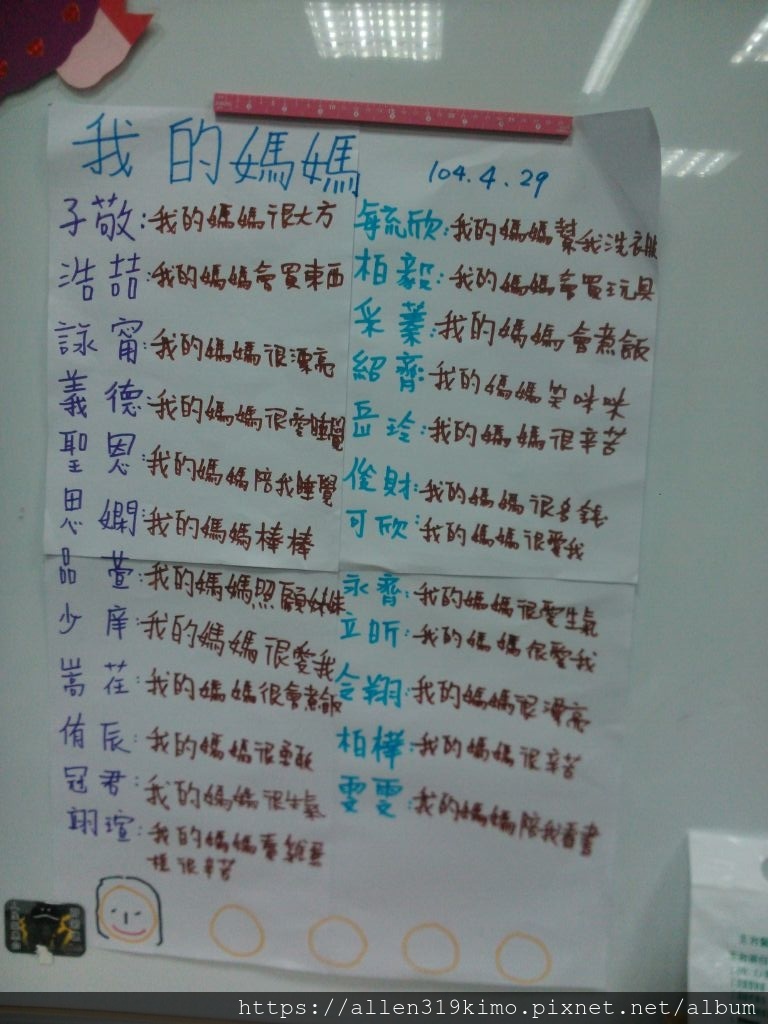 我的媽媽
104.4.29
子敬:我的媽媽很大方
浩喆:我的媽媽會買東西
詠甯:我的媽媽很漂亮
義德:我的媽媽很愛睡覺
聖恩:我的媽媽陪我睡覺
思嫻:我的媽媽棒棒
品萱:我的媽媽照顧妹妹
少庠:我的媽媽很愛我
嵩荏:我的媽媽很會煮飯
侑辰:我的媽媽很勇敢
冠君:我的媽媽很生氣
翊瑄:我的媽媽
很辛苦
毓欣:我的媽媽幫我洗衣服
柏毅:我的媽媽會買玩具
采蓁:我的媽媽會煮飯
紹齊:我的媽媽笑咪咪
岳玲:我的媽媽很辛苦
俊財:我的媽媽很多錢
可欣:我的媽媽很愛我
永齊:我的媽媽很愛生氣
立昕:我的媽媽很愛我
翔:我的媽媽很漂亮
柏樺:我的媽媽很辛苦
雯雯:我的媽媽陪我看書
https://allen319kimo.pixnet.net/album